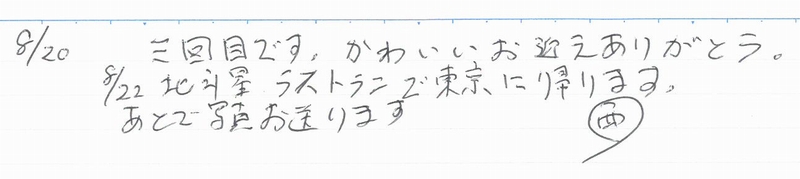 8/20 三回目です。かわいいお迎えありがとう。
8/22 北斗星 ラストランで東京に帰ります。
あとで写真お送りします
西